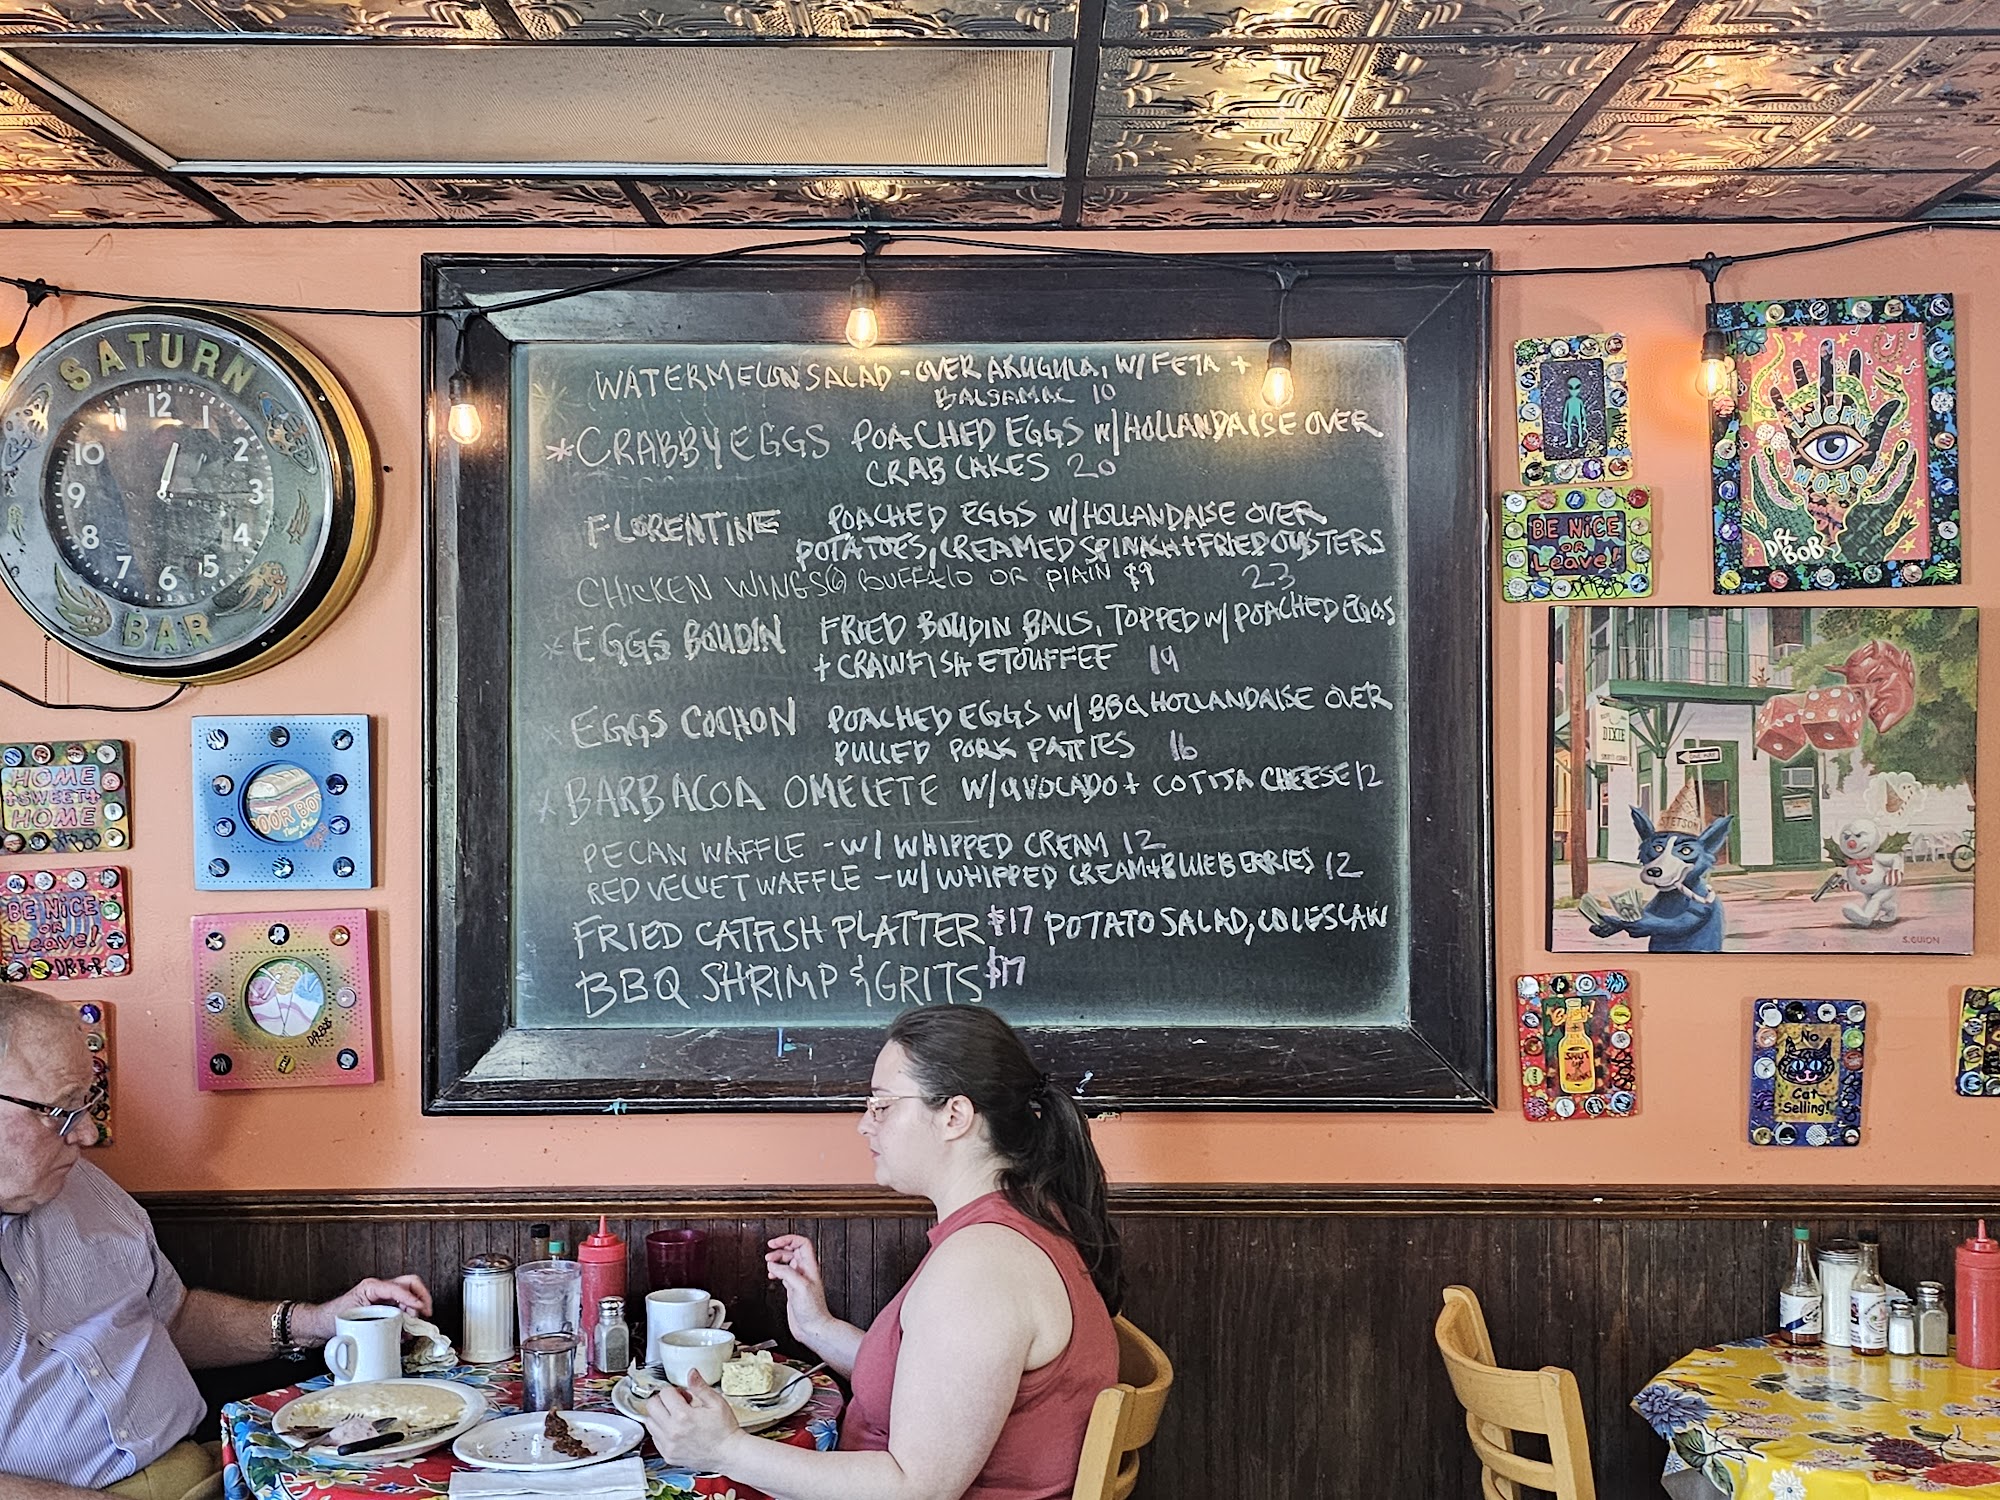 SATURN
12
1
2
3
4
5
6
7
8
9
10
11
BAR
WATERMELON SALAD - OVER ARUGULA, W/ FETA +
BALSAMAC 10
*CRABBY EGGS POACHED EGGS w/ HOLLANDAISE OVER
CRAB CAKES 20
FLORENTINE POACHED EGGS w/ HOLLANDAISE OVER
POTATOES, CREAMED SPINACH + FRIED OYSTERS
CHICKEN WINGS (6) BUFFALO OR PLAIN $9 23
* EGGS BOUDIN FRIED BOUDIN BALLS, TOPPED w/ POACHED EGGS
+ CRAWFISH ETOUFFEE 19
* EGGS COCHON POACHED EGGS w/ BBQ HOLLANDAISE OVER
PULLED PORK PATTIES 16
* BARBACOA OMELETE w/ AVOCADO + COTIJA CHEESE 12
PECAN WAFFLE - w/ WHIPPED CREAM 12
RED VELVET WAFFLE - w/ WHIPPED CREAM + BLUEBERRIES 12
FRIED CATFISH PLATTER $17 POTATO SALAD, COLESLAW
BBQ SHRIMP & GRITS $17
HOME
+SWEET+
HOME
DR BOB
BE NiCE
OR
Leave!
DR BOB
POOR BOY
DR BOB
BE NiCE
OR
Leave!
DR BOB
LUCKY
MOJO
DR BOB
DIXIE
ONE WAY
STETSON
S. GUION
SHUT
UP
No
Cat
Selling!